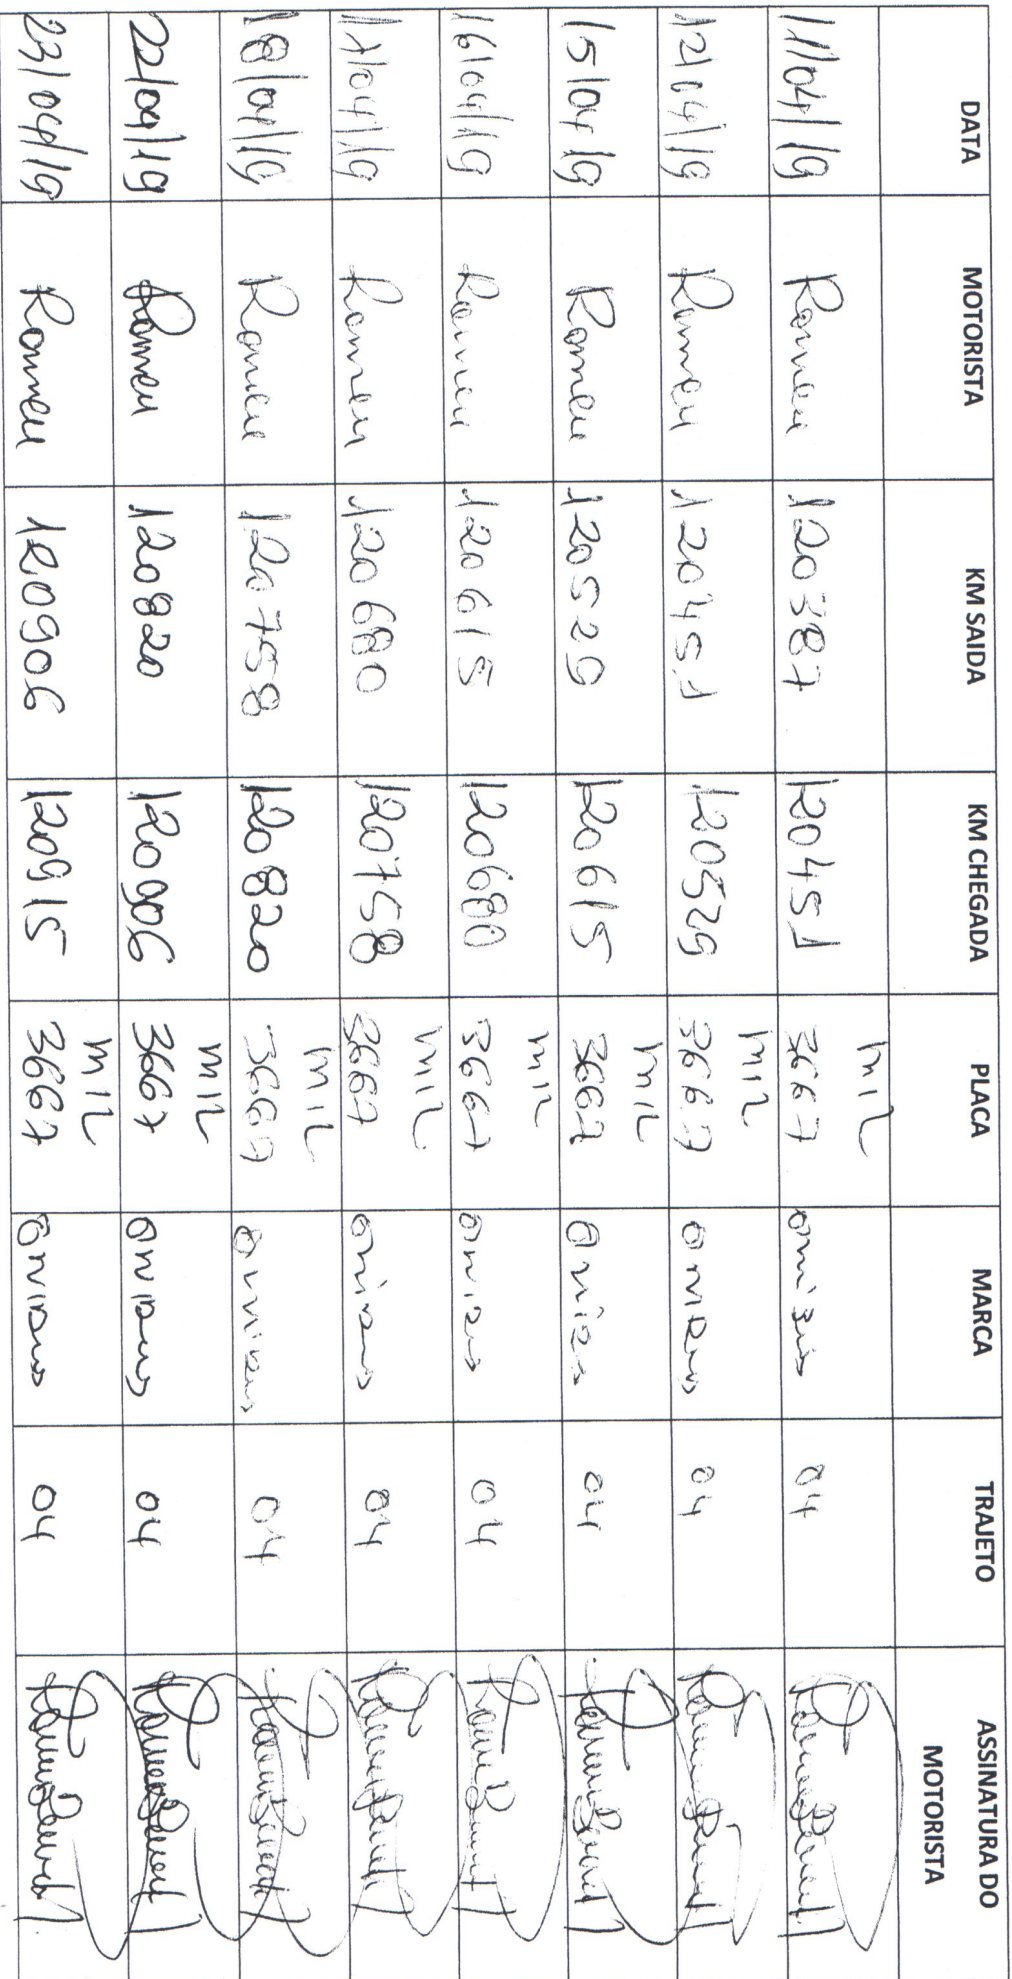 DATA MOTORISTA KM SAIDA KM CHEGADA PLACA MARCA TRAJETO ASSINATURA DO
MOTORISTA
11/04/19 Romeu 120387 120451 MIL 3667 onibus 04
12/04/19 Romeu 120451 120529 MIL 3667 onibus 04
15/04/19 Romeu 120529 120615 MIL 3667 onibus 04
16/04/19 Romeu 120615 120680 MIL 3667 onibus 04
17/04/19 Romeu 120680 120758 MIL 3667 onibus 04
18/04/19 Romeu 120758 120820 MIL 3667 onibus 04
22/04/19 Romeu 120820 120906 MIL 3667 onibus 04
23/04/19 Romeu 120906 120915 MIL 3667 onibus 04